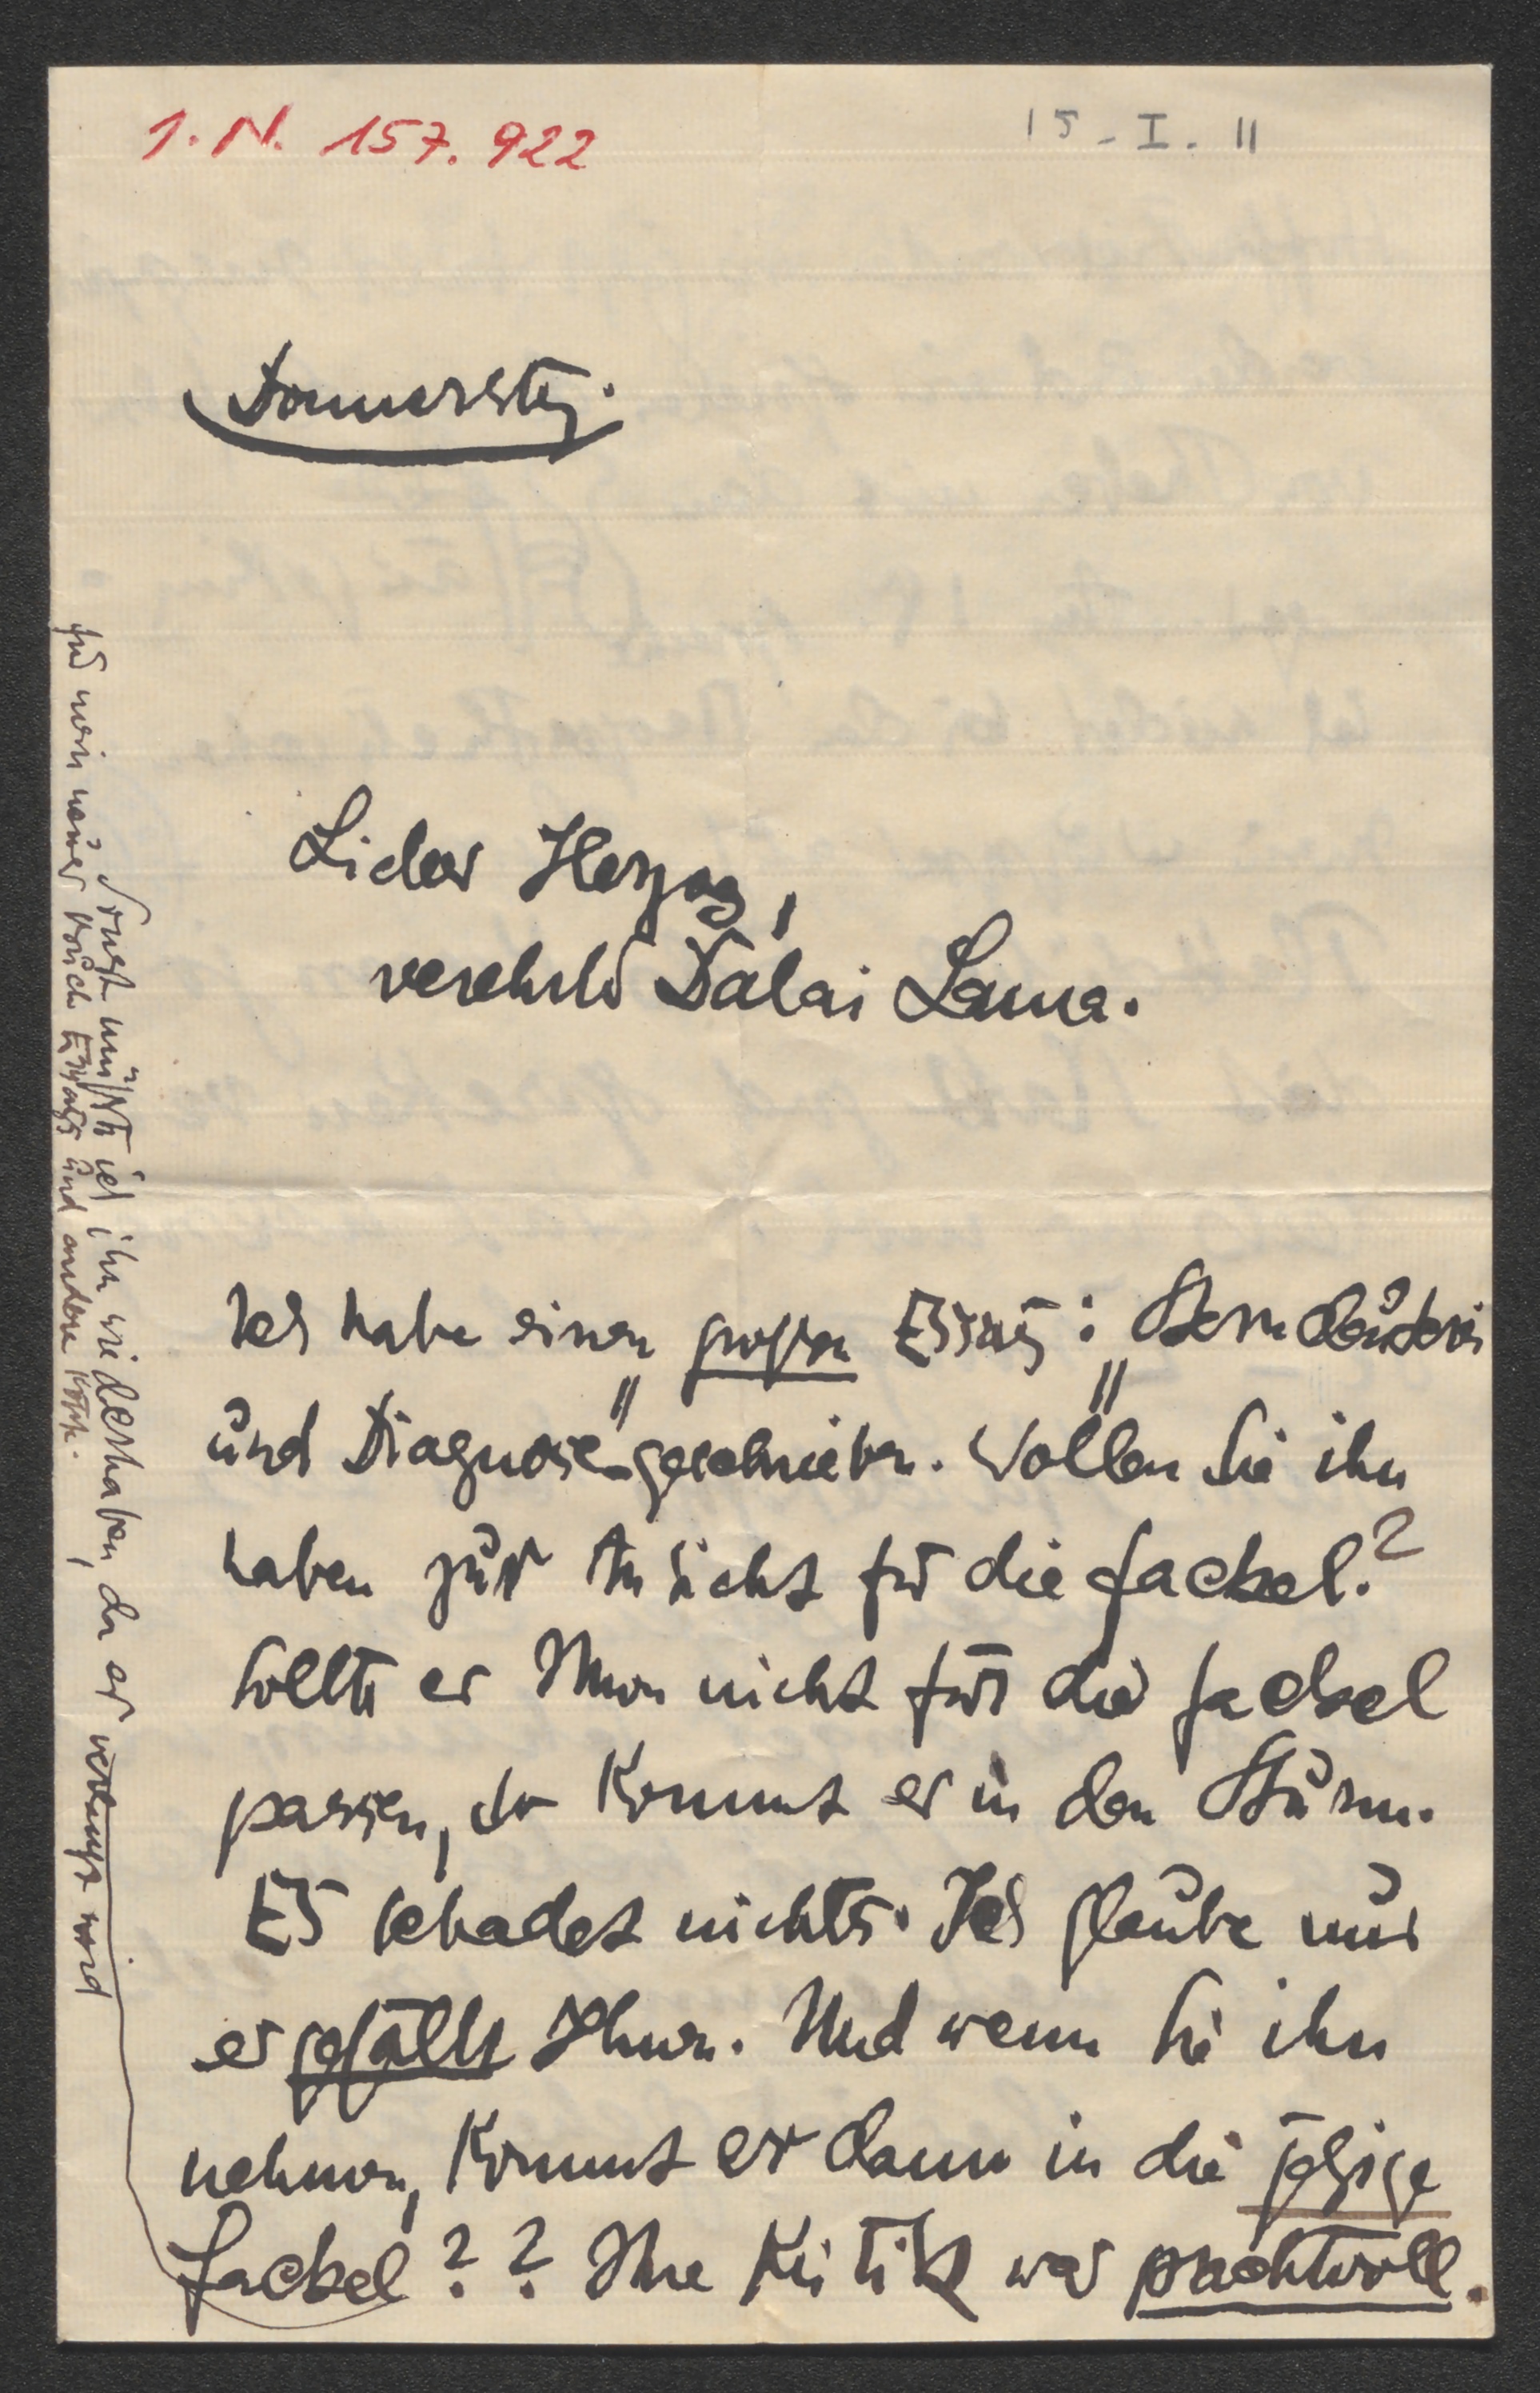 I. N. 157.922
15 - I. 11
Donnerstag.
Lieber Herzog,
verehrter Dalai Lama.
Ich habe einen großen Essay: „Sterndeuterei
und Diagnose" geschrieben. Wollen Sie ihn
haben zur Ansicht für die Fackel.?
Sollte er Ihnen nicht für die Fackel
passen, so kommt er in den Sturm.
Es schadet nichts. Ich glaube nur
er gefällt Ihnen. Und wenn Sie ihn
nehmen, kommt er dann in die jetzige
Fackel?? Ihre Kritik war prachtvoll.
Sonst müßte ich ihn wiederhaben, da er verlangt wird
für mein neues Buch Essays und andere